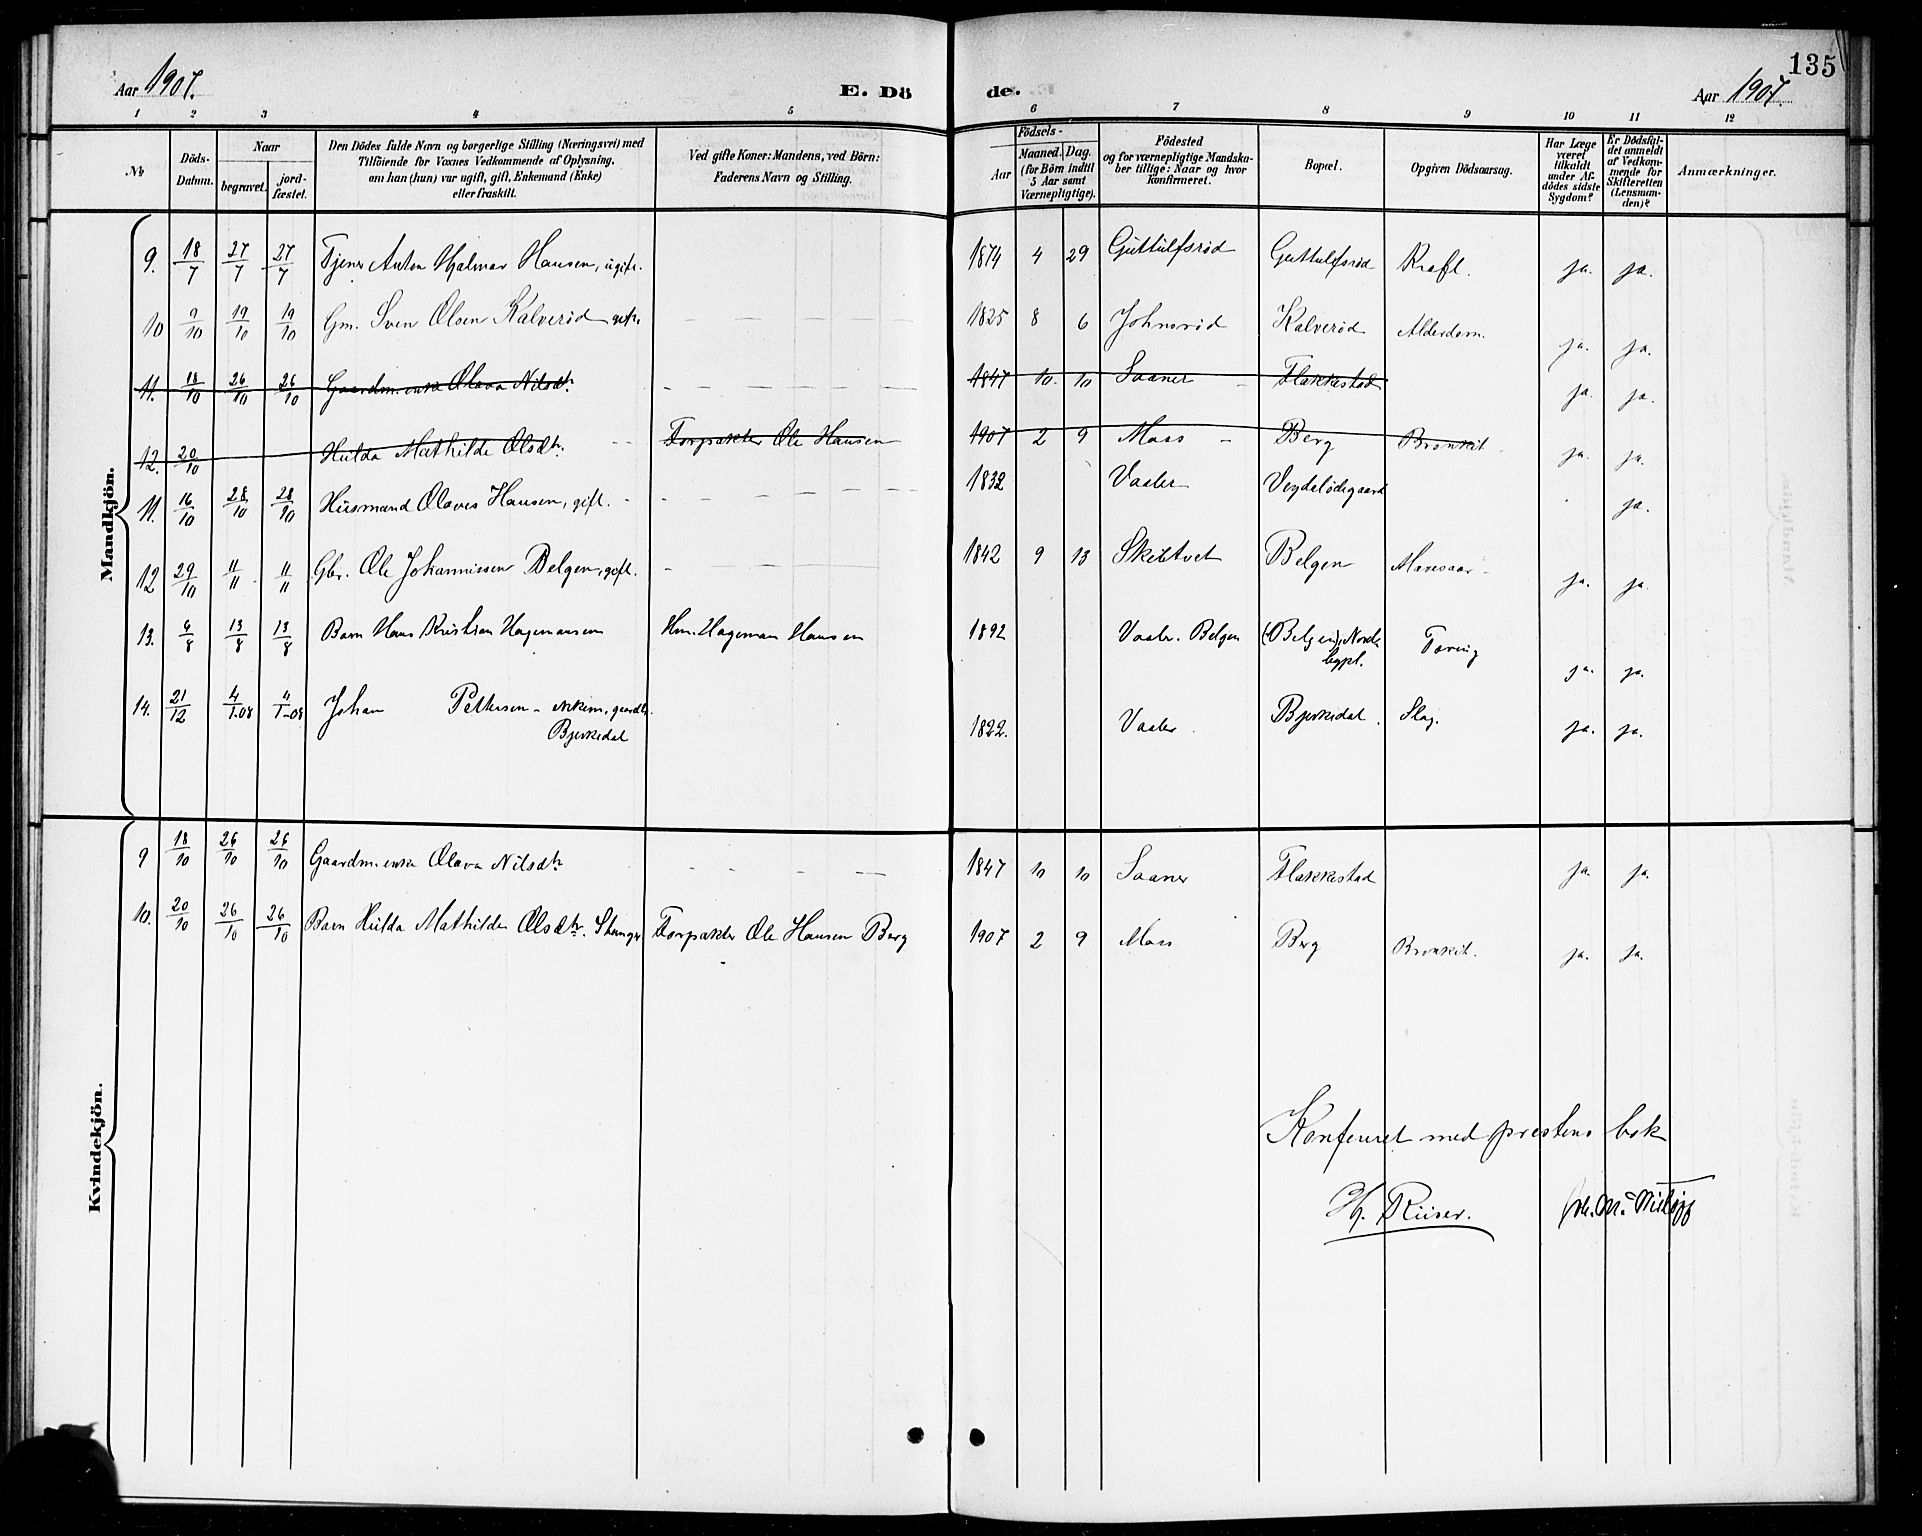 135
Aar 1907. E. Dö de. Aar 1907.
1 2 3 4 5 6 7 8 9 10 11 12
№ Döds-Datum. Naar begravet. jord-fæstet. Den Dödes fulde Navn og borgerlige Stilling (Næringsvei) med Tilföiende for Voxnes Vedkommende af Oplysning, om han (hun) var ugift, gift, Enkemand (Enke) eller fraskilt. Ved gifte Koner: Mandens, ved Börn: Faderens Navn og Stilling. Födsels- Aar Maaned. Dag. (for Börn indtil 5 Aar samt Værnepligtige). Födested og for værnepligtige Mandskaber tillige: Naar og hvor Konfirmeret. Bopæl. Opgiven Dödsaarsag. Har Læge været tilkaldt under Afdödes sidste Sygdom? Er Dödsfaldet anmeldt af Vedkommende for Skifteretten (Lensmanden)? Anmærkninger.
Mandkjön.
9. 18/7 27/7 27/7 Tjener Anton Hjalmar Hansen, ugift. 1874 4 29 Guttulfsrød Guttulfsrød Kræft. ja. ja.
10 9/10 19/10 19/10 Gm. Sven Olsen Kalverød gift. 1825 8 6 Johnsrød Kalverød Alderdom. ja. ja.
11. 18/10 26/10 26/10 Gaardm. enke Olava Nilsdtr. 1847 10. 10 Saaner Flakkestad ja. ja.
12. 20/10 Hulda Mathilde Olsdtr. Forpakter Ole Hansen 1907 2 9 Moss Berg Bronkit ja. ja.
11. 16/10 28/10 28/10 Husmand Olaves Hansen, gift. 1832 Vaaler Veydalødegaard ja.
12 29/10 11/11 11/11 Gbr. Ole Johannissen Belgen, gift. 1842 9 13 Skibtvet Belgen Mavesaar ja. ja.
13. 6/8 13/8 13/8 Barn Hans Kristian Hagemansen Hm. Hageman Hansen 1892 Vaaler. Belgen (Belgen), Nordre bypl. Tæring ja. ja.
14. 21/12 4/1-08 4/1-08 Johan Pettersen - enkem, gaardbr. Bjerkedal 1822. Vaaler Bjerkedal. Slag. ja. ja.
Kvindekjön.
9 18/10 26/10 26/10 Gaardm. enke Olava Nilsdtr 1847 10 10 Saaner Flakkestad ja. ja.
10. 20/10 26/10 26/10 Barn Hulda Mathilde Olsdtr. Stanger Forpakter Ole Hansen Berg 1907 2 9 Moss Berg Bronkit. ja. ja.
Konfereret med prestens bok
H. Riiser.